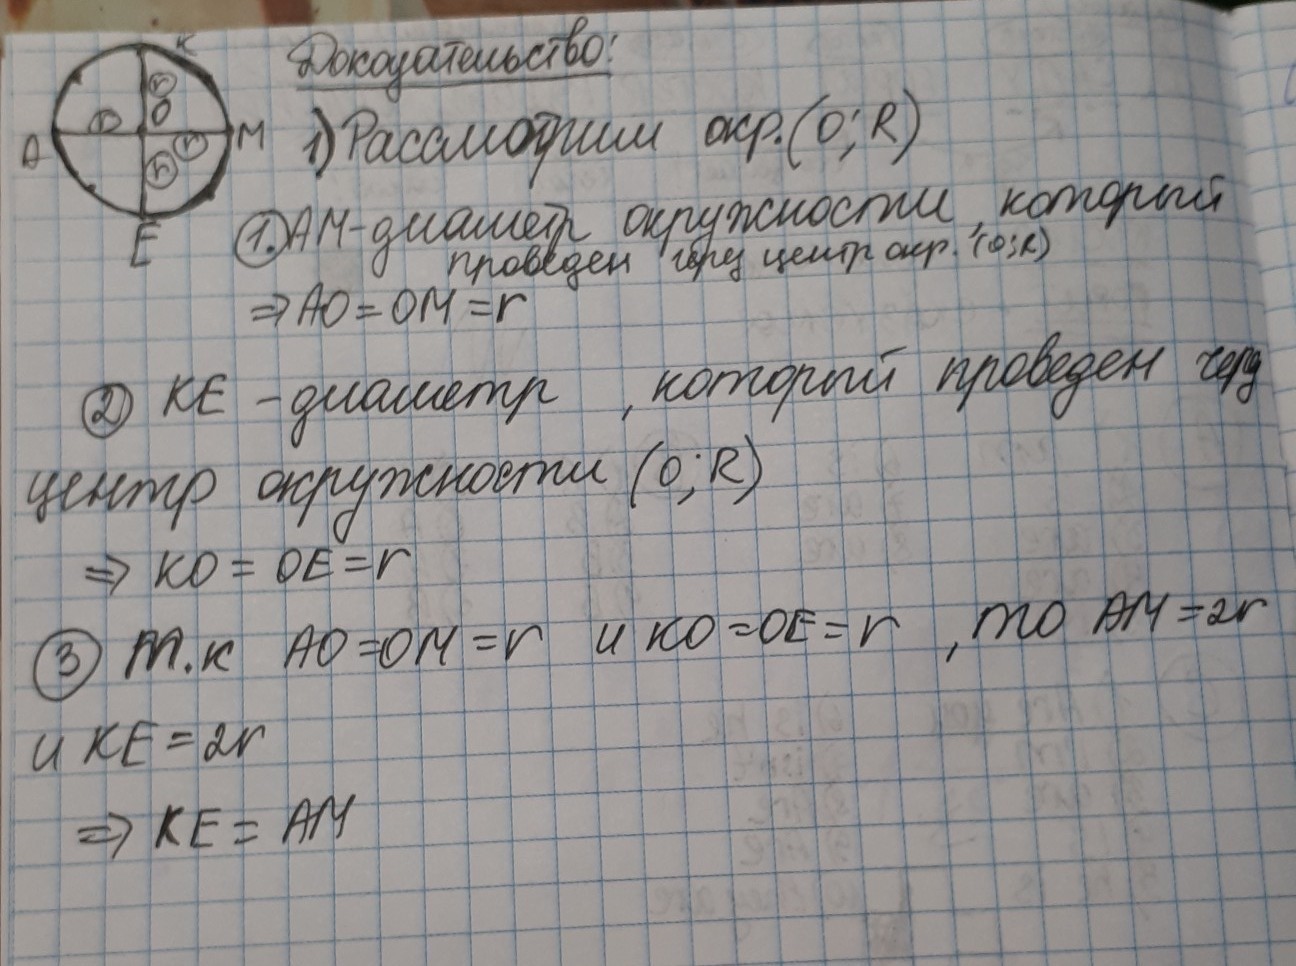 К
Доказательство:
r
O
r
A
M
r
r
E
1) Рассмотрим окр.(O;R)
1. AM-диаметр окружности, который
проведен через центр окр. (O;R)
⇒ AO = OM = r
2 KE - диаметр , который проведен через
центр окружности (O;R)
⇒ KO = OE = r
3 т.к AO=OM=r и KO=OE=r , то AM=2r
и KE=2r
⇒ KE = AM